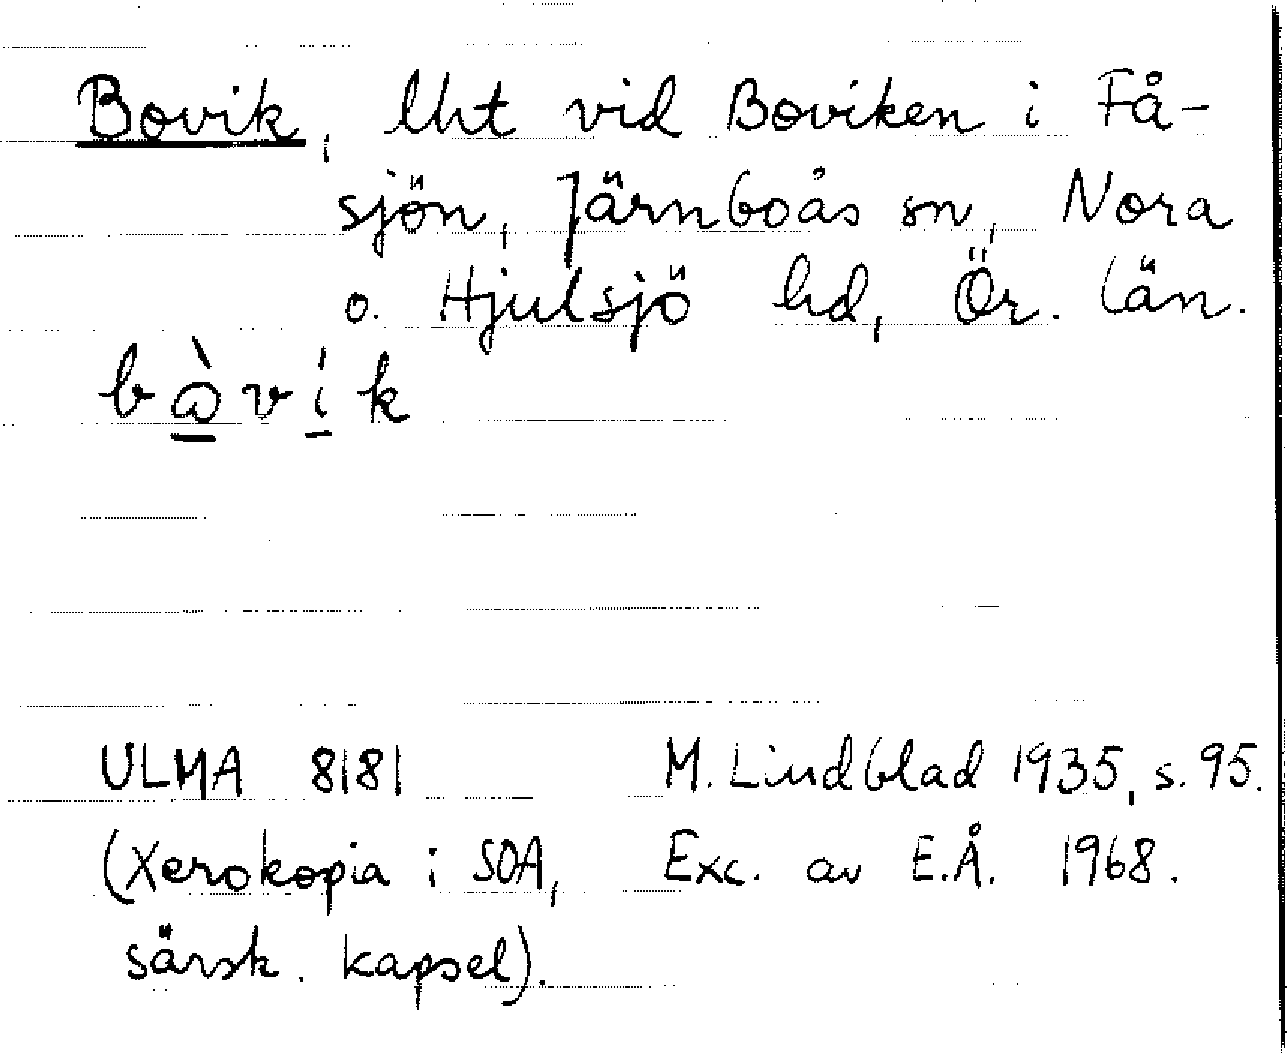 Bovik, lht vid Boviken i Få-
sjön, Järnboås sn, Nora
o. Hjulsjö hd, Ör. län.
b
v
k
ULMA 8181 M. Lindblad 1935, s. 95.
(Xerokopia i SOA, Exc. av E.Å. 1968.
särsk. kapsel).